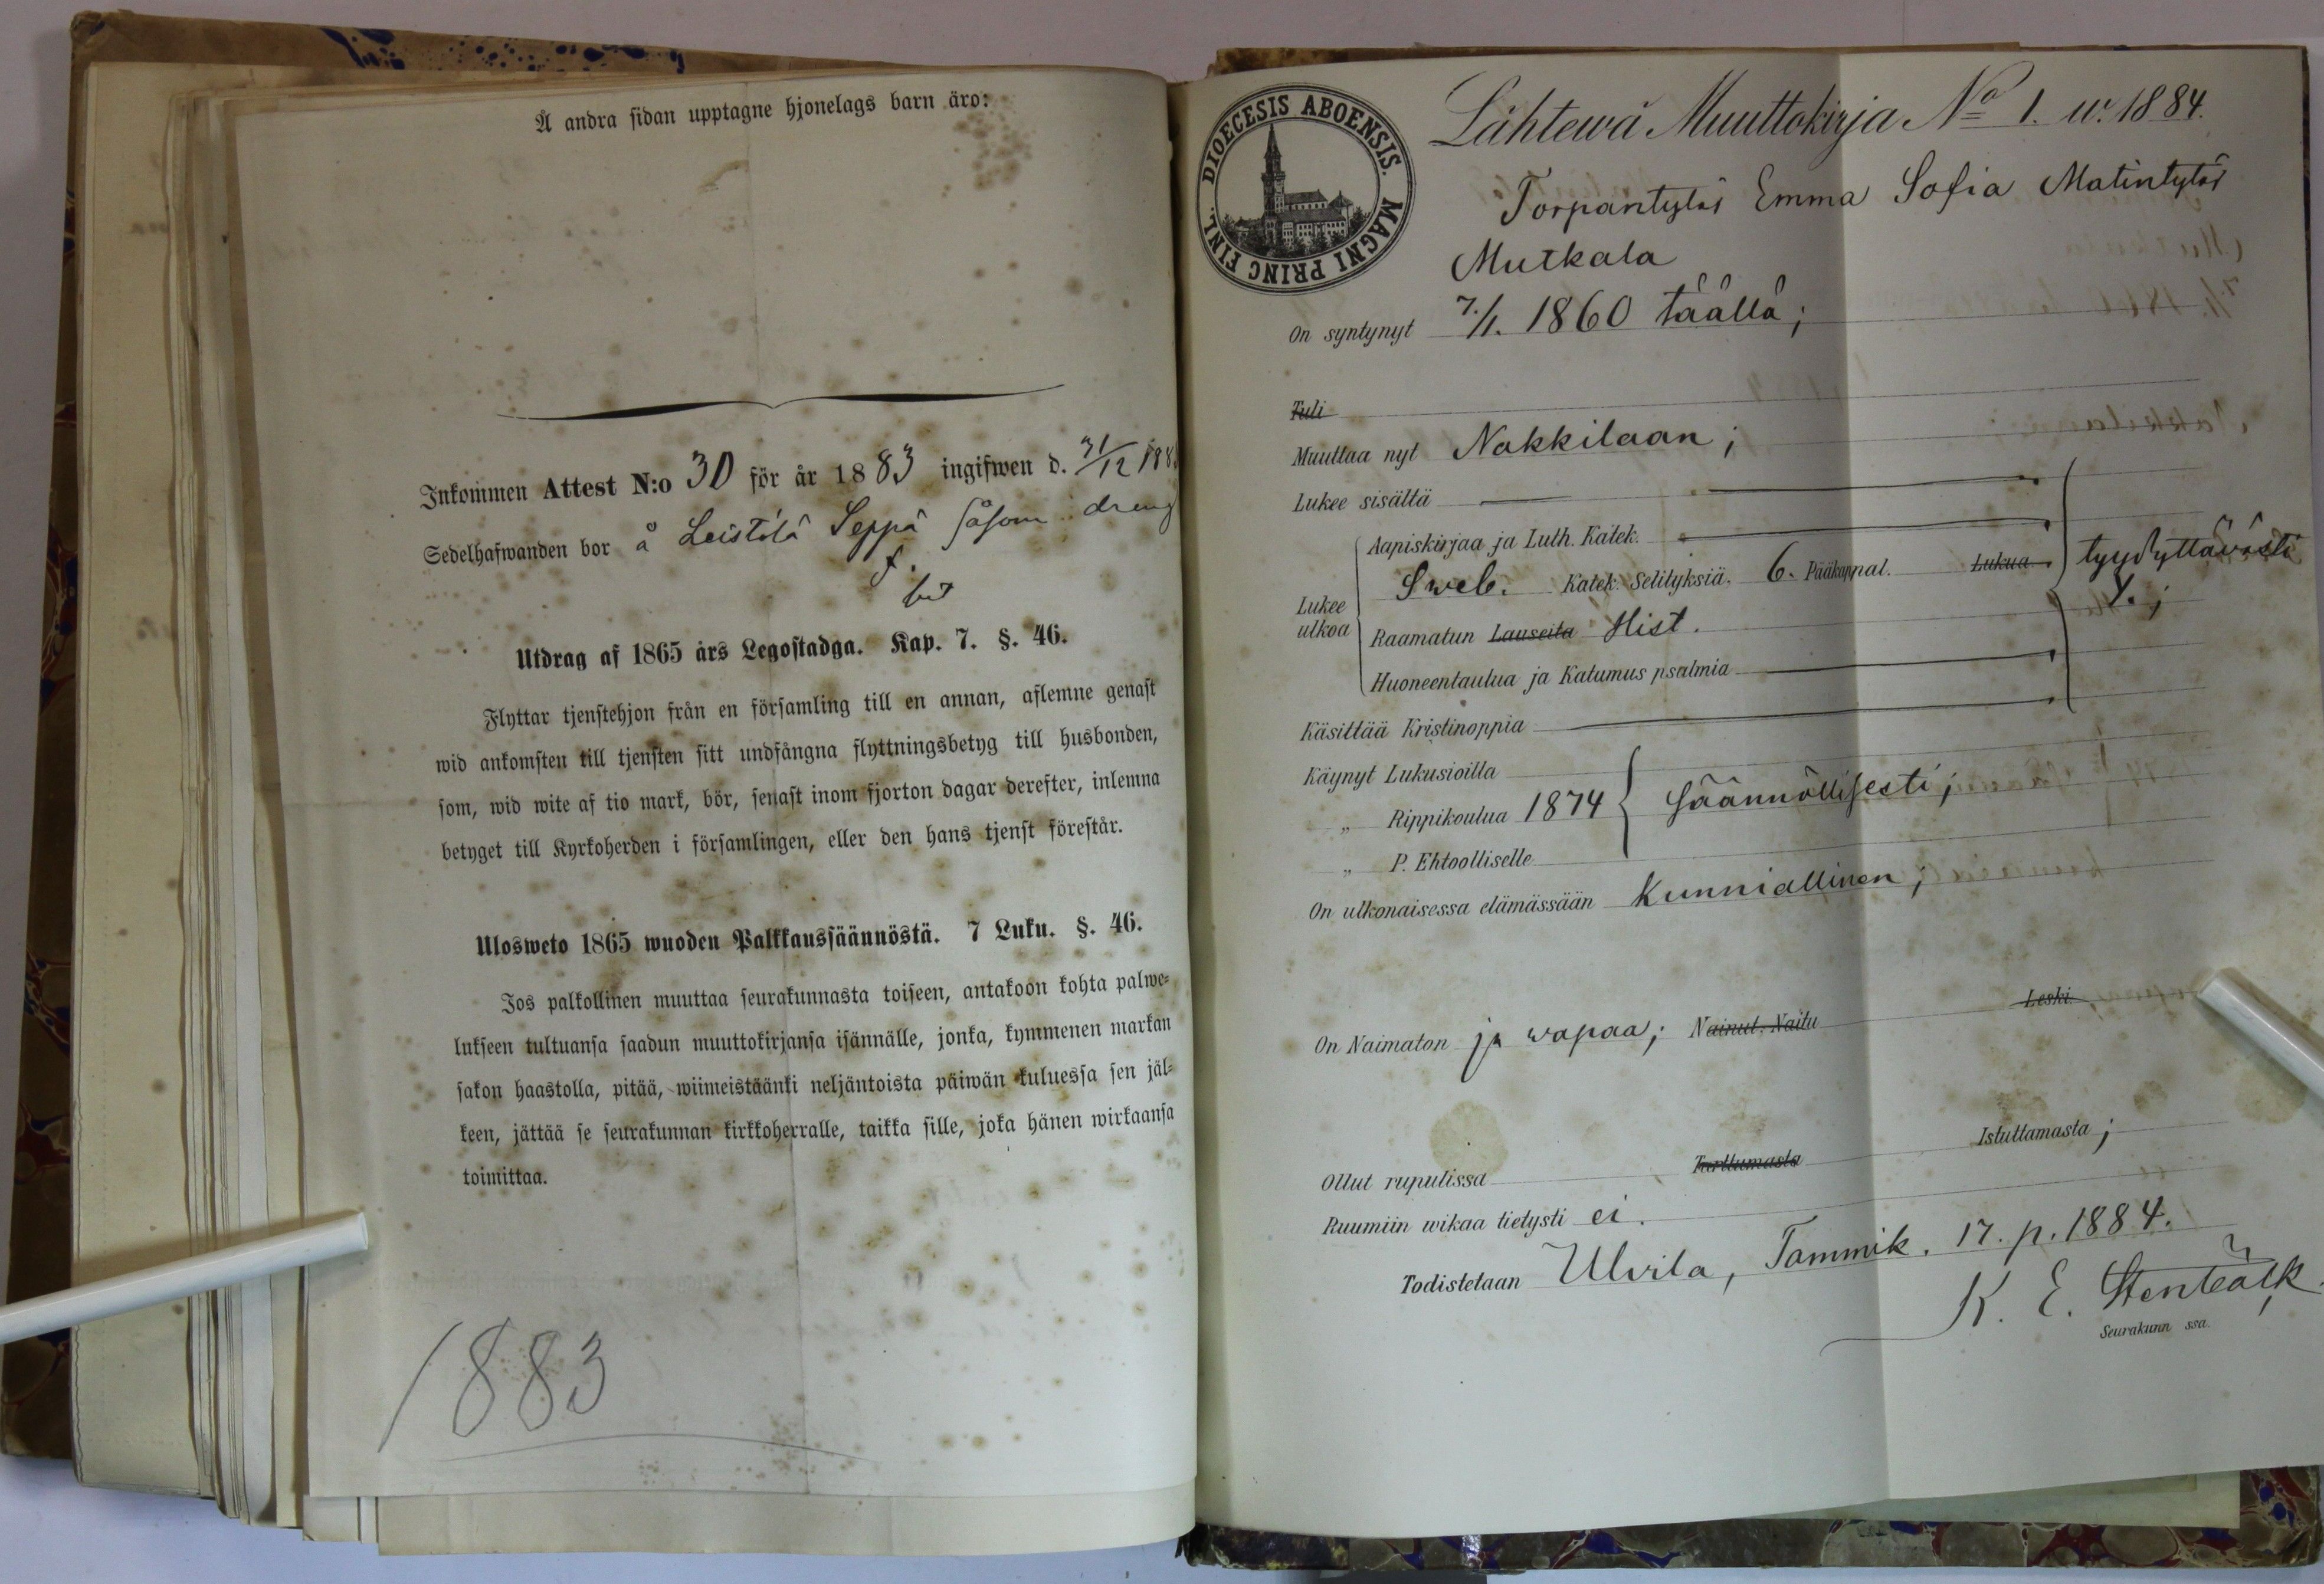 Å andra sidan upptagne hjonelags barn äro:
Inkommen Attest N:o 30 för år 1883 ingifwen d. 31/12 188
Sedelhafwanden bor å Leistilä Seppä såsom dreng
Utdrag af 1865 års Legostadga. Kap. 7. §. 46.
Flyttar tjenstehjon från en församling till en annan, aflemne genast
wid ankomsten till tjensten sitt undfångna flyttningsbetyg till husbonden,
som, wid wite af tio mark, bör, senast inom fjorton dagar derefter, inlemna
betyget till Kyrkoherden i församlingen, eller den hans tjenst förestår.
Ulosweto 1865 wuoden Palkkaussäännöstä. 7 Luku. §. 46.
Jos palkollinen muuttaa seurakunnasta toiseen, antakoon kohta palwe-
lukseen tultuansa saadun muuttokirjansa isännälle, jonka, kymmenen markan
sakon haastolla, pitää, wiimeistäänki neljäntoista päiwän kuluessa sen jäl-
keen, jättää se seurakunnan kirkkoherralle, taikka sille, joka hänen wirkaansa
toimittaa.
1883
DIOECESIS ABOENSIS. MAGNI PRINC FINL.
Lähtewä Muuttokirja No 1. w. 1884.
Torpantytär Emma Sofia Matintytär
Mutkala
On syntynyt 7./1. 1860 täällä;
Tuli
Muuttaa nyt Nakkilaan;
Lukee sisältä
Lukee ulkoa
Aapiskirjaa ja Luth. Katek.
Sweb. Katek. Selityksiä. 6. Pääkappal. Lukua tyydyttäwästi
Raamatun Lauseita Hist.
Huoneentaulua ja Katumus psalmia
Käsittää Kristinoppia
Käynyt Lukusioilla
" Rippikoulua 1874 säännöllisesti;
" P. Ehtoolliselle
On ulkonaisessa elämässään Kunniallinen;
On Naimaton ja wapaa; Nainut. Naitu Leski.
Ollut rupulissa Tarttumasta Istuttamasta;
Ruumiin wikaa tietysti ei.
Todistetaan Ulvila, Tammik. 17. p. 1884.
K. E. Stenbäck
Seurakunn ssa.